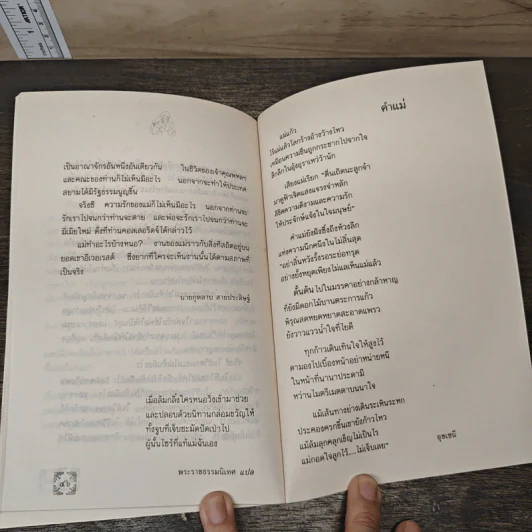 เป็นอาณาจักรอันหนึ่งอันเดียวกัน ในชีวิตของเจ้าคุณพหลฯ
และคณะของท่านก็ไม่เห็นมีอะไร นอกจากจะทำให้ประเทศ
สยามได้มีรัฐธรรมนูญขึ้น
จริงซี ความรักของแม่ก็ไม่เห็นมีอะไร นอกจากท่านจะ
รักเราไปจนกว่าท่านจะตาย และพ่อจะรักเราไปจนกว่าท่านจะ
มีเมียใหม่ ดังที่ท่านคอลเลอริดจ์ได้กล่าวไว้
แม่ทำอะไรบ้างหนอ? งานของแม่ราวกับสิ่งที่สถิตอยู่บน
ยอดเขาอีเวอเรสต์ ซึ่งยากที่ใครจะเห็นงานนั้นได้ตามสภาพที่
เป็นจริง
นายกุหลาบ สายประดิษฐ์
เมื่อล้มกลิ้งใครหนอวิ่งเข้ามาช่วย
และปลอบด้วยนิทานกล่อมขวัญให้
ทั้งจูบที่เจ็บชะมัดปัดเป่าไป
ผู้นั้นไซร้ที่แท้แม่ฉันเอง
พระราชธรรมนิเทศ แปล
คำแม่
แม่แก้ว
ไร้แม่แล้วโลกร้างอ้างว้างไหว
เหมือนความชื่นถูกกระชากไปจากใจ
เสียงแม่เรียก "ตื่นเถิดนะลูกจ๋า
มาดูฟ้าเจิดแสงแจรงจำหลัก
ลิขิตความดีงามและความรัก
ให้ประจักษ์แจ้งในใจมนุษย์"
คำแม่ยังฝังซึ้งถึงห้วงลึก
แห่งความนึกหนึ่งในไม่สิ้นสุด
"อย่าสิ้นหวังรั้งรอระย่อทรุด
อย่างยั้งหยุดเพียงไม่แลเห็นแม่แล้ว
ดั้นด้น ไปในมรรคาอย่างกล้าหาญ
ที่ยังมีดอกไม้บานตระการแก้ว
พิรุณสดหยดหยาดสะอาดแพรว
ยังวาวแววน้ำใจที่ไยดี
ทุกก้าวเดินเทินใจให้สูงไว้
ตามองไปเบื้องหน้าอย่าหน่ายหนี
ในหน้าที่นานาประดามี
หว่านไมตรีเมตตาบนนาใจ
แม้เส้นทางย่างเดินระเหินระหก
ประคองตรวกขึ้นเขายังก้าวไหว
แม้ล้มลุกคลุกเข็ญไม่เป็นไร
แม่กอดใจลูกไว้....ไม่เจ็บเลย"
อุชเชนี